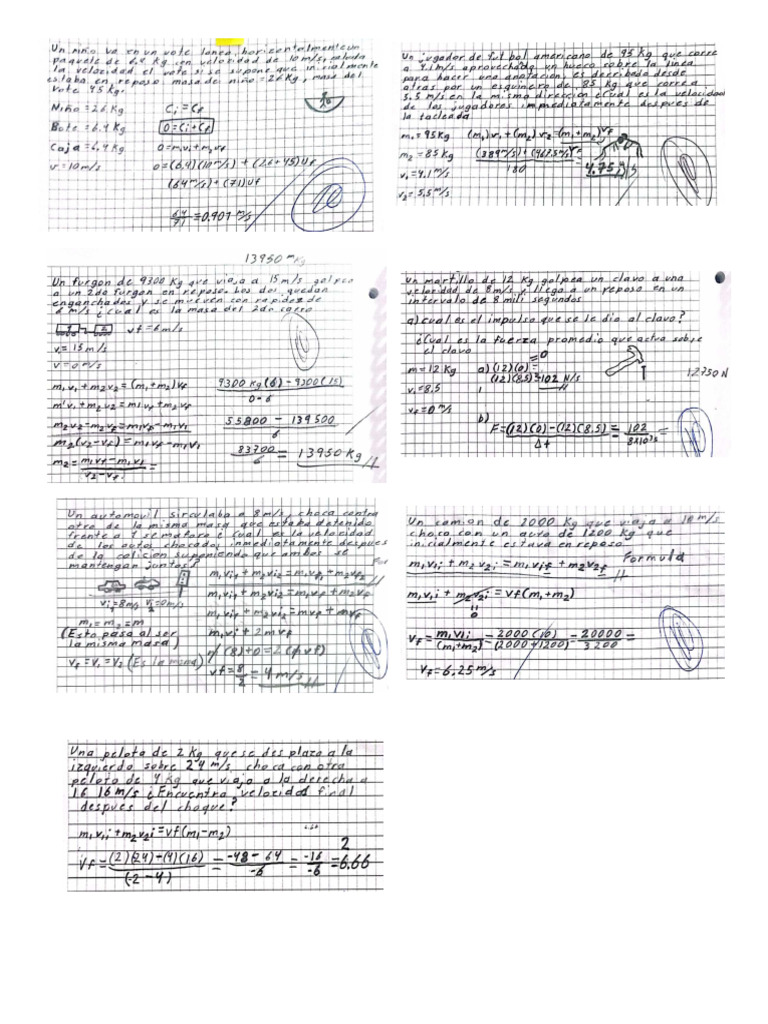 Un niño va en un vote lanea, horizontalmente un
paquete de 6.4 Kg con velocidad de 10 m/s, calcula
la velocidad el vote si se supone que inicialmente
estaba en reposo. masa de niño = 26 Kg, masa del
vote 45 Kg.
Niño = 26 Kg
Bote = 6.4 Kg
Caja = 6.4 Kg
v = 10 m/s
Ci = Cf
0 = Ci + Cf
0 = m1v1 + m2vf
0 = (6.4)(10 m/s) + (26+45)Uf
(64 m/s) + (71)Uf
64/71 = 0.901 m/s
Un jugador de futbol americano de 95 Kg que corre
a 4.1 m/s aprovechado un hueco sobre la linea
para hacer una anotacion, es derribado desde
atras por un esquinero de 85 kg que corre a
5.5 m/s en la misma direccion ¿Cual es la velocidad
de los jugadores immediatamente despues de
la tacleada
m1 = 95 Kg
m2 = 85 Kg
v1 = 4.1 m/s
v2 = 5.5 m/s
(m1) v1 + (m2) v2 = (m1 + m2) vf
(389 m/s) + (467.5 m/s) vf
180
4.75 m/s
13950 m Kg
Un furgon de 9300 Kg que viaja a 15 m/s golpea
a un 2do furgon en reposo. los dos quedan
enganchados y se mueven con rapidez de
6 m/s ¿cual es la masa del 2do carro
1 2 vf = 6 m/s
v = 15 m/s
v = 0 m/s
m1v1 + m2v2 = (m1 + m2) vf
m1v1 + m2v2 = m1vf + m2vf
m2v2 - m2vf = m1vf - m1v1
m2(v2 - vf) = m1vf - m1v1
m2 = m1vf - m1v1 =
v2 - vf
9300 kg(6) - 9300(15)
0 - 6
55800 - 139500
6
83700 = 13950 Kg
6
Un martillo de 12 Kg golpea un clavo a una
velocidad de 8 m/s y llega a un reposo en un
intervalo de 8 mili segundos
a) cual es el impulso que se le dio al clavo?
¿Cual es la fuerza promedio que actua sobre
el clavo
m = 12 Kg
v1 = 8.5
vf = 0 m/s
a) (12)(0) = 0
(12)(8.5) = 102 N/s
12750 N
b)
F = (12)(0) - (12)(8.5) = 102 =
Δt
Un automovil sirculaba a 8 m/s, choca contra
otro de la misma masa que estaba detenido
frente a 1 semaforo ¿Cual es la velocidad
de los autos chocados inmediatamente despues
de la colicion suponiendo que ambos se
mantengan juntos?
For
vi1 = 8 m/s vi2 = 0 m/s
m1 = m2 = m
(Esto pasa al ser
la misma masa)
vf = v1 = v2 (Es la misma)
m1vi1 + m2vi2 = m1vf1 + m2vf2
m1vi1 + m2vi2 = m1vf + m2vf
m1vi1 + m2vi2 = mvf + mvf
m1vi + 2mvf
m(8) + 0 = 2(mvf)
vf = 8 = 4 m/s
2
Un camion de 2000 Kg que viaja a 10 m/s
choco con un auto de 1200 Kg que
inicialmente estava en reposo
Formula
m1v1i + m2v2i = m1v1f + m2v2f
m1v1i + m2v2i = vf(m1 + m2)
0
vf = m1v1i = 2000 (10) = 20000 =
(m1+m2) (2000+1200) 3200
vf = 6.25 m/s
Una pelota de 2 Kg que se desplaza a la
izquierdo sobre 24 m/s choca con otra
peloto de 4 Kg que viajo a la derecha a
16 16 m/s ¿Encuentra velocidad final
despues del choque?
m1v1i + m2v2i = vf(m1 - m2)
Vf = (2)(24) - (4)(16) = -48 - 64 = -16 = 6.66
(-2 - 4) -6 -6
2